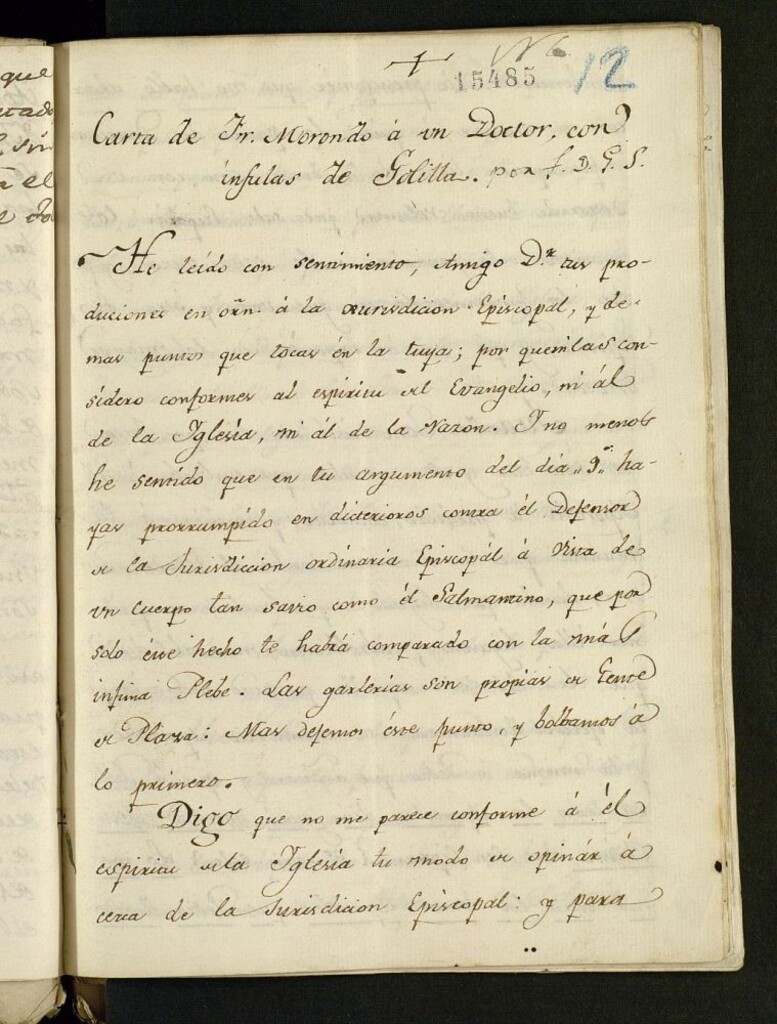 que
N.º
15485
12
Carta de Fr. Morondo á vn Doctor, con
ínfulas de Golilla. por f. D. G. S.
He leído con sentimiento, Amigo D.r tus pro-
duciones en orñ. á la Jurisdicion Episcopal, y de-
mas puntos que tocas én la tuya; por que ni las con-
sidero conformes al espiritu del Evangelio, ni ál
de la Iglesia, ni ál de la Razon. Y no menos
he sentido que en tu argumento del dia 9 ha-
yas prorrumpido en dicterioros contra él Defensor
de la Jurisdiccion ordinaria Episcopál á vista de
vn cuerpo tan savio como él Salmantino, que por
solo éste hecho te habrá comparado con la má
infima Plebe. Las garlerias son propias de Gente
de Plaza: Mas dejemos éste punto, y bolbamos á
lo primero.
Digo que no me parece conforme á él
espiritu de la Iglesia tu modo de opinár á
cerca de la Jurisdicion Episcopal: y para